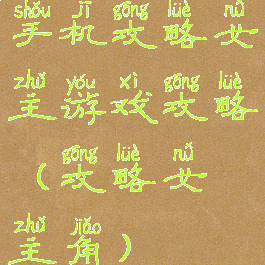 shǒu jī gōng lüè nǚ
手机攻略女
zhǔ yóu xì gōng lüè
主游戏攻略
gōng lüè nǚ
(攻略女
zhǔ jiǎo
主角)